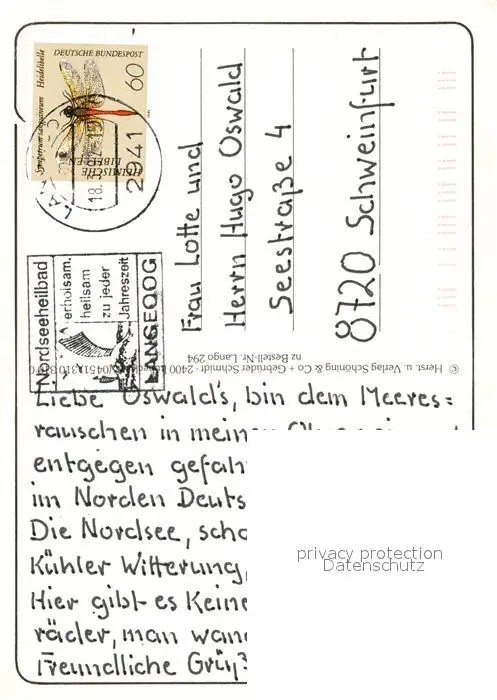 DEUTSCHE BUNDESPOST
Heidelibelle
60
HEIMISCHE
LIBELLEN
2941
18.
Nordseeheilbad
erholsam.
heilsam
zu jeder
Jahreszeit
LANGEOOG
Frau Lotte und
Herrn Hugo Oswald
Seestraße 4
8720 Schweinfurt
© Herst. u. Verlag Schöning & Co + Gebrüder Schmidt · 2400
nz Bestell-Nr. Lango 294
Liebe Oswald's, bin dem Meeres=
rauschen in meinen
entgegen gefah
im Norden Deuts
Die Nordsee, scho
Kühler Witterung,
Hier gibt es Keine
räder, man wand
Freundliche Grüß
privacy protection
Datenschutz